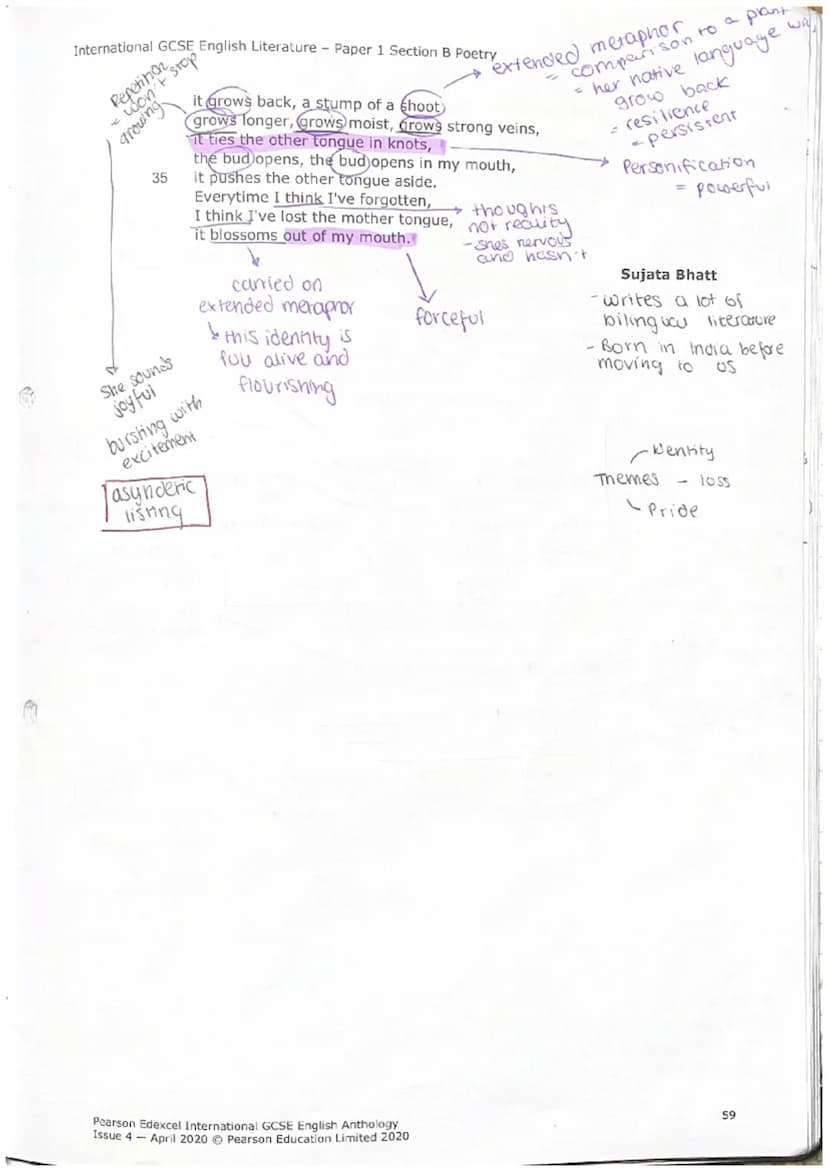 International GCSE English Literature – Paper 1 Section B Poetry
extended metaphor
= comparison to a plant
= her native language will
grow back
= resilience
= persistent
Repetition
= won't stop
growing
it grows back, a stump of a shoot
grows longer, grows moist, grows strong veins,
it ties the other tongue in knots,
the bud opens, the bud opens in my mouth,
35 it pushes the other tongue aside.
Everytime I think I've forgotten,
I think I've lost the mother tongue,
it blossoms out of my mouth.
Personification
= powerful
thoughts
not reality
- shes nervous
and hasn't
carried on
extended metaphor
↳ this identity is
full alive and
flourishing
forceful
Sujata Bhatt
- writes a lot of
bilingual literature
- Born in India before
moving to US
She sounds
joyful
bursting with
excitement
asyndetic
listing
Identity
Themes - loss
Pride
59
Pearson Edexcel International GCSE English Anthology
Issue 4 — April 2020 © Pearson Education Limited 2020